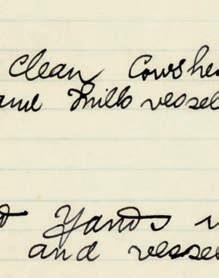 Clean Cowshe
and Milk vessel
Yards
and vesse